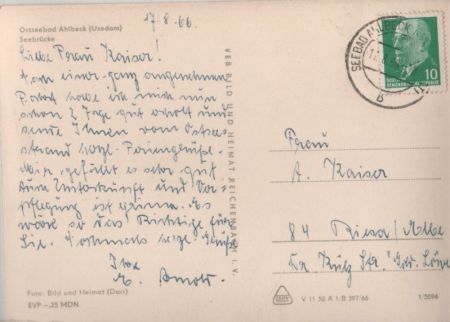 Ostseebad Ahlbeck (Usedom)
Seebrücke
17.8.66.
Liebe Frau Kaiser!
Nach einer ganz angenehmen
Fahrt habe ich mich nun
schon 2 Tage gut erholt und
sende Ihnen vom Ostsee-
strand herzl. Feriengrüße.
Mir gefällt es sehr gut
Unterkunft und Ver-
pflegung ist prima. Es
wäre so das Richtige für
Sie. Nochmals herzl. Grüße
Ihre
E. Arnold
Foto: Bild und Heimat (Darr)
EVP -,25 MDN
VEB BILD UND HEIMAT REICHENBACH I. V.
SEEBAD AHLBECK
10
Frau
A. Kaiser
84 Riesa/Elbe
Dr. Külz Str. "Gold. Löwe
V 11 50 A 1/B 397/66
1/5096